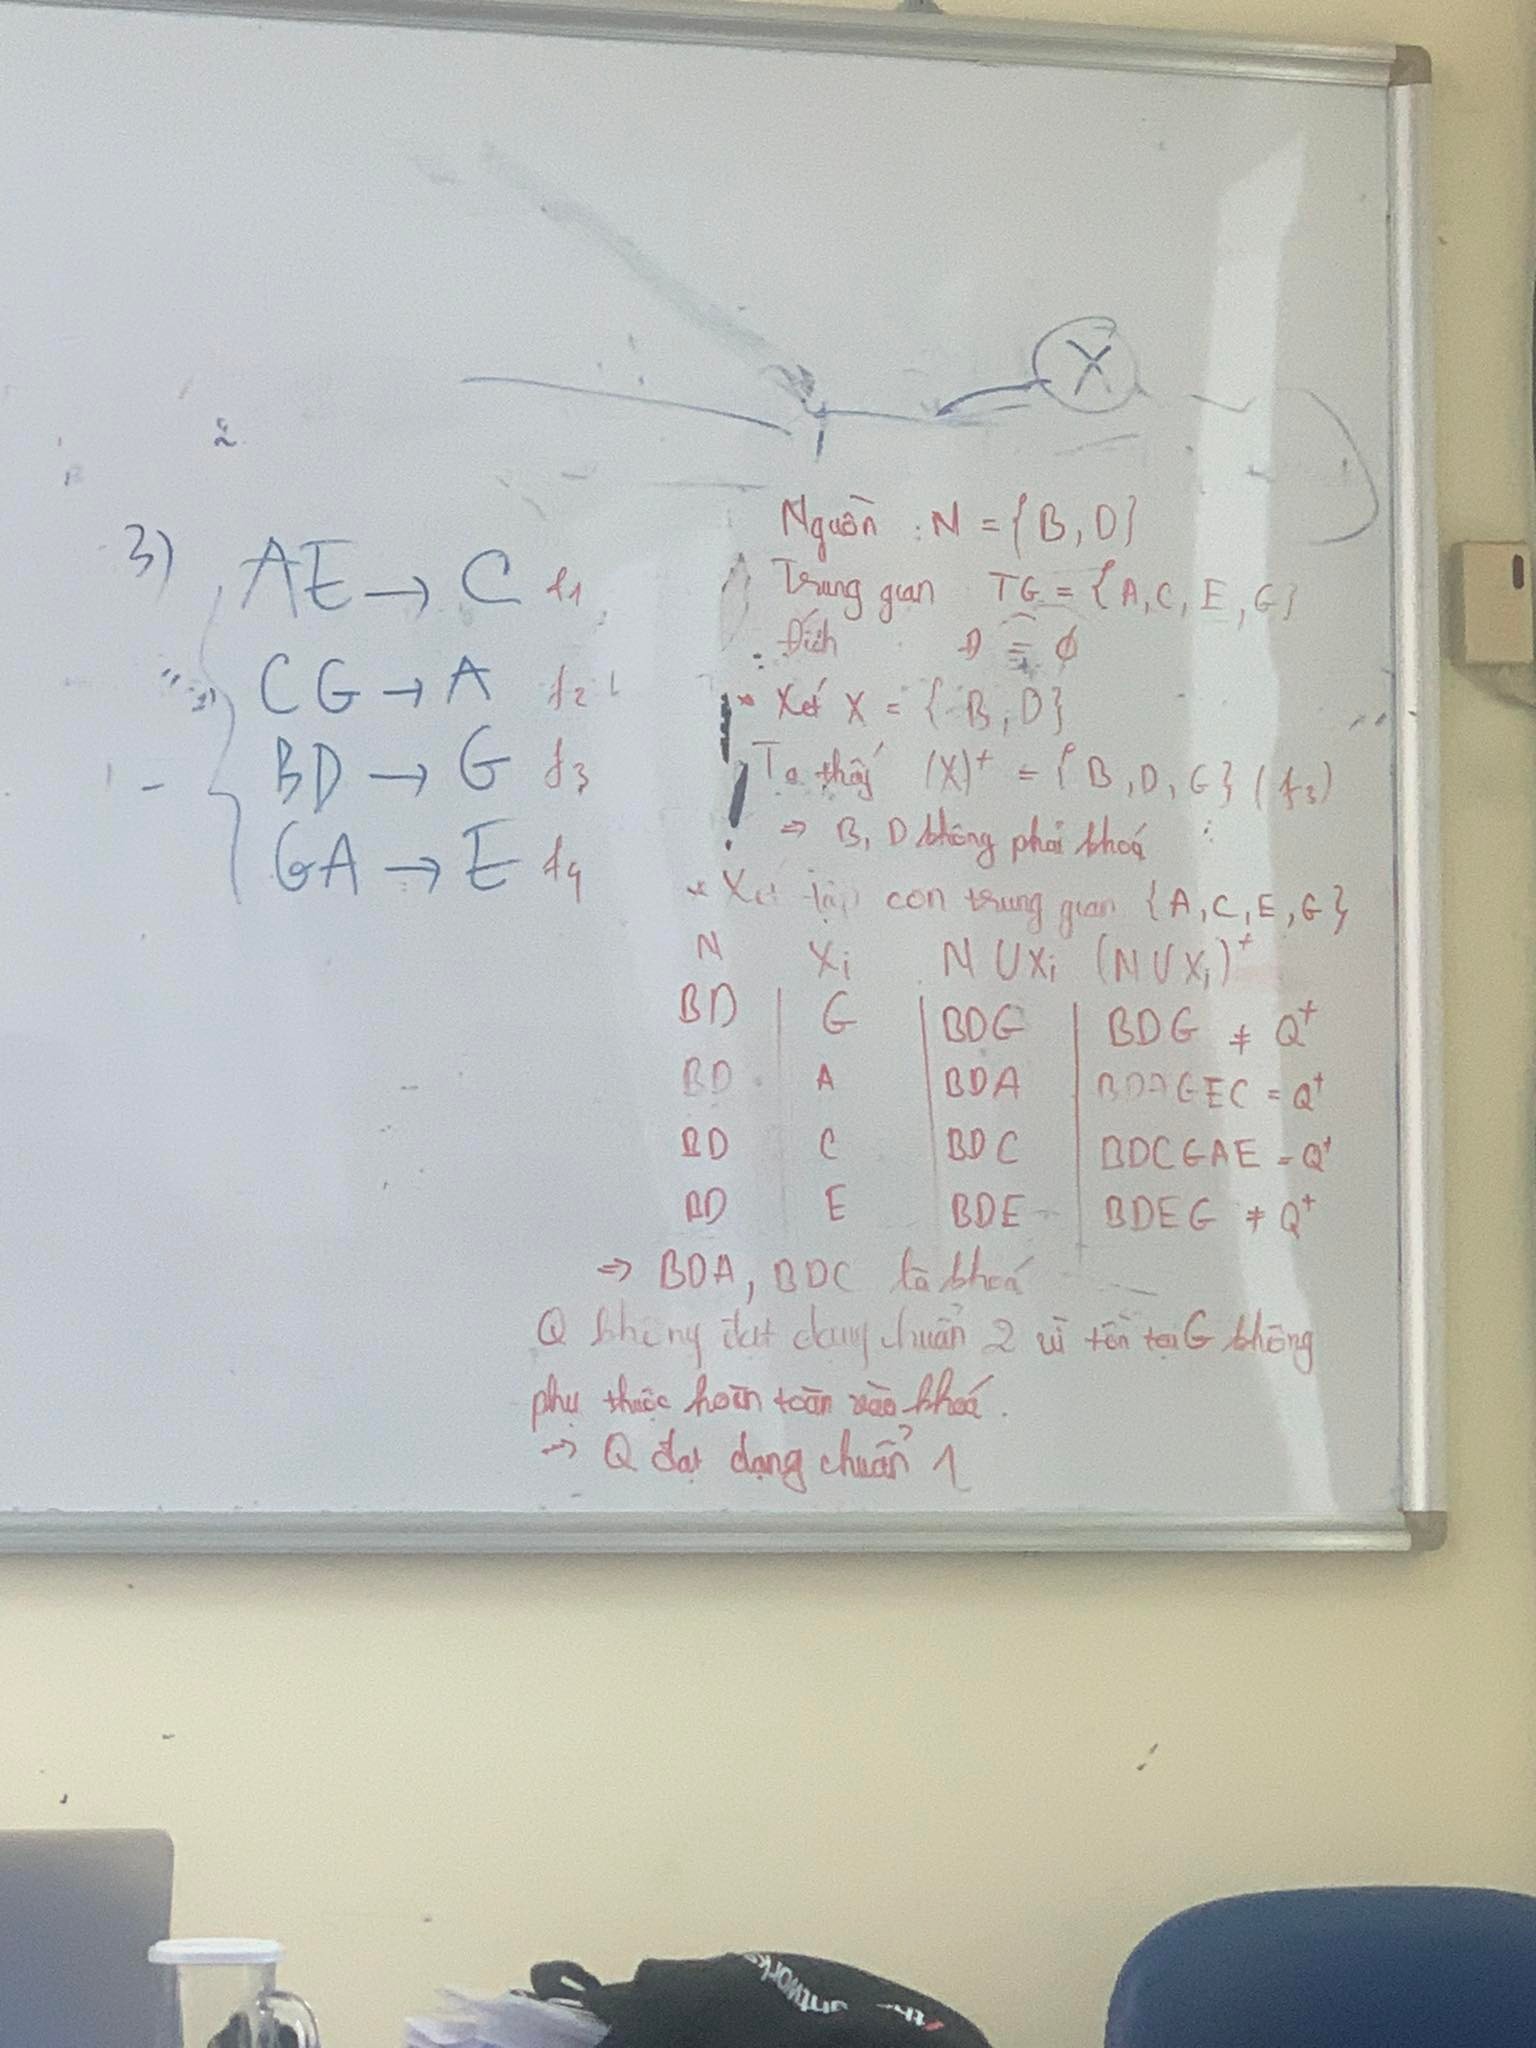 3) AE → C f1
CG → A f2
BD → G f3
GA → E f4
X
Nguồn : N = {B, D}
Trung gian TG = {A, C, E, G}
Đích Đ = ∅
* Xét X = {B, D}
Ta thấy (X)⁺ = {B, D, G} (f3)
⇒ B, D không phải khoá
* Xét tập con trung gian {A, C, E, G}
N Xi N ∪ Xi (N ∪ Xi)⁺
BD G BDG BDG ≠ Q⁺
BD A BDA BDAGEC = Q⁺
BD C BDC BDCGAE = Q⁺
BD E BDE BDEG ≠ Q⁺
⇒ BDA, BDC là khoá
Q không đạt dạng chuẩn 2 vì tồn tại G không
phụ thuộc hoàn toàn vào khoá.
⇒ Q đạt dạng chuẩn 1